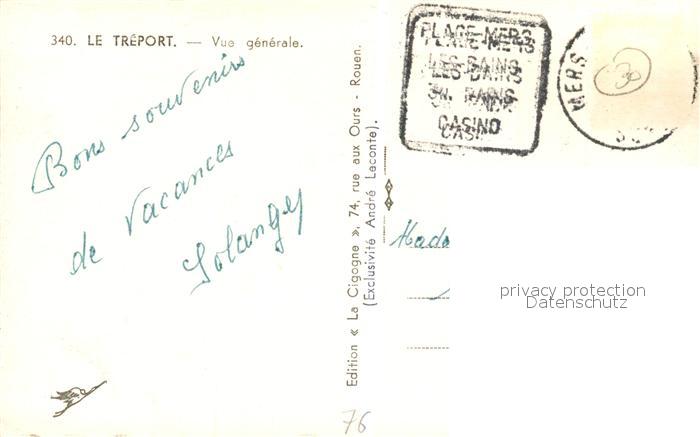 340. LE TRÉPORT. — Vue générale.
Bons souvenirs
de vacances
Solange
Edition « La Cigogne », 74, rue aux Ours - Rouen.
(Exclusivité André Leconte).
PLAGE-MERS
LES-BAINS
CASINO
MERS
30
Mada
privacy protection
Datenschutz
76